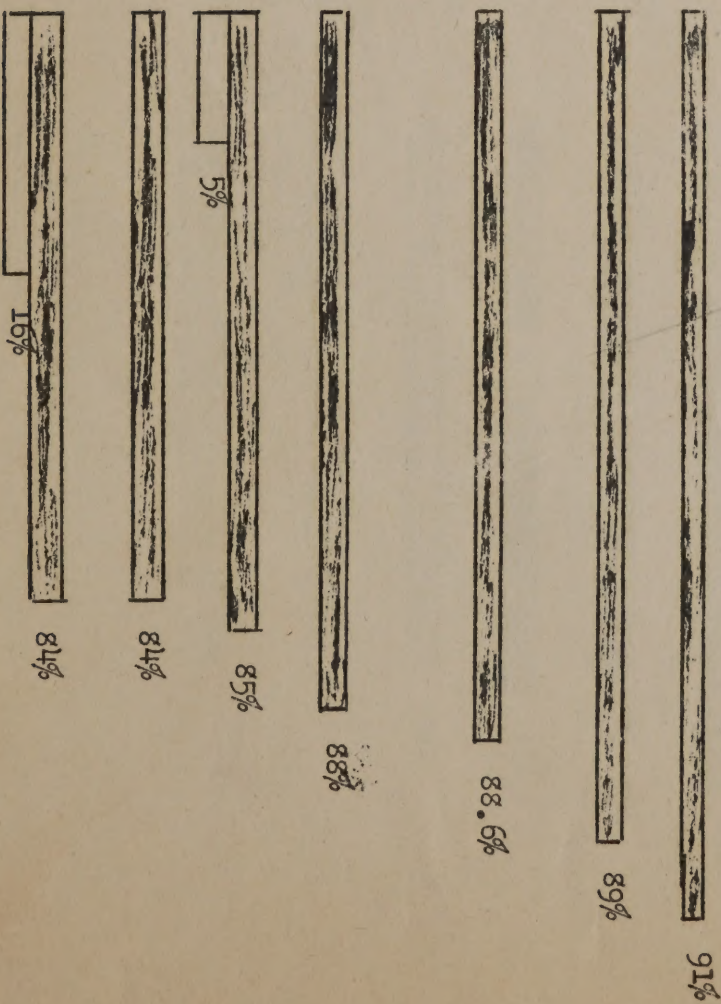 91%
89%
88.6%
88%
85%
5%
84%
84%
16%